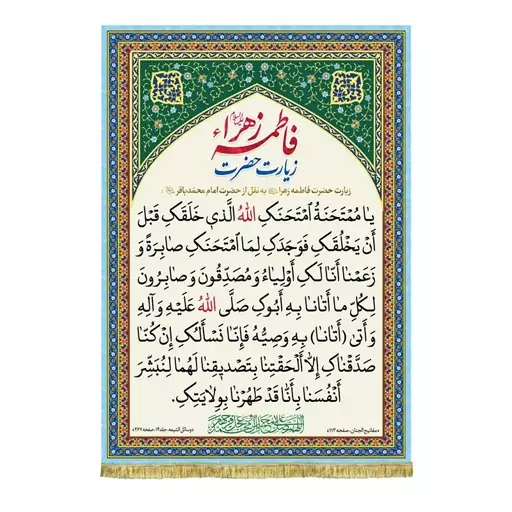 زیارت حضرت
فاطمه زهراء
زیارت حضرت فاطمه زهرا به نقل از حضرت امام محمدباقر :
یا مُمْتَحَنَةُ امْتَحَنَکِ اللهُ الَّذی خَلَقَکِ قَبْلَ
أَنْ یَخْلُقَکِ فَوَجَدَکِ لِمَا امْتَحَنَکِ صابِرَةً وَ
زَعَمْنا أَنَّا لَکِ أَوْلِیاءُ وَ مُصَدِّقُونَ وَ صابِرُونَ
لِکُلِّ ما أَتانا بِهِ أَبُوکِ صَلَّی اللهُ عَلَیْهِ وَ آلِهِ
وَ أَتیٰ (أَتانا) بِهِ وَصِیُّهُ فَإِنَّا نَسْأَلُکِ إِنْ کُنَّا
صَدَّقْناکِ إِلَّا أَلْحَقْتِنا بِتَصْدِیقِنا لَهُما لِنُبَشِّرَ
أَنْفُسَنا بِأَنَّا قَدْ طَهُرْنا بِوِلایَتِکِ.
اللهم صل علی محمد وآل محمد وعجل فرجهم
«مفاتیح الجنان، صفحه ۷۱۳»
«وسائل الشیعه، جلد ۱۴، صفحه ۳۶۷»